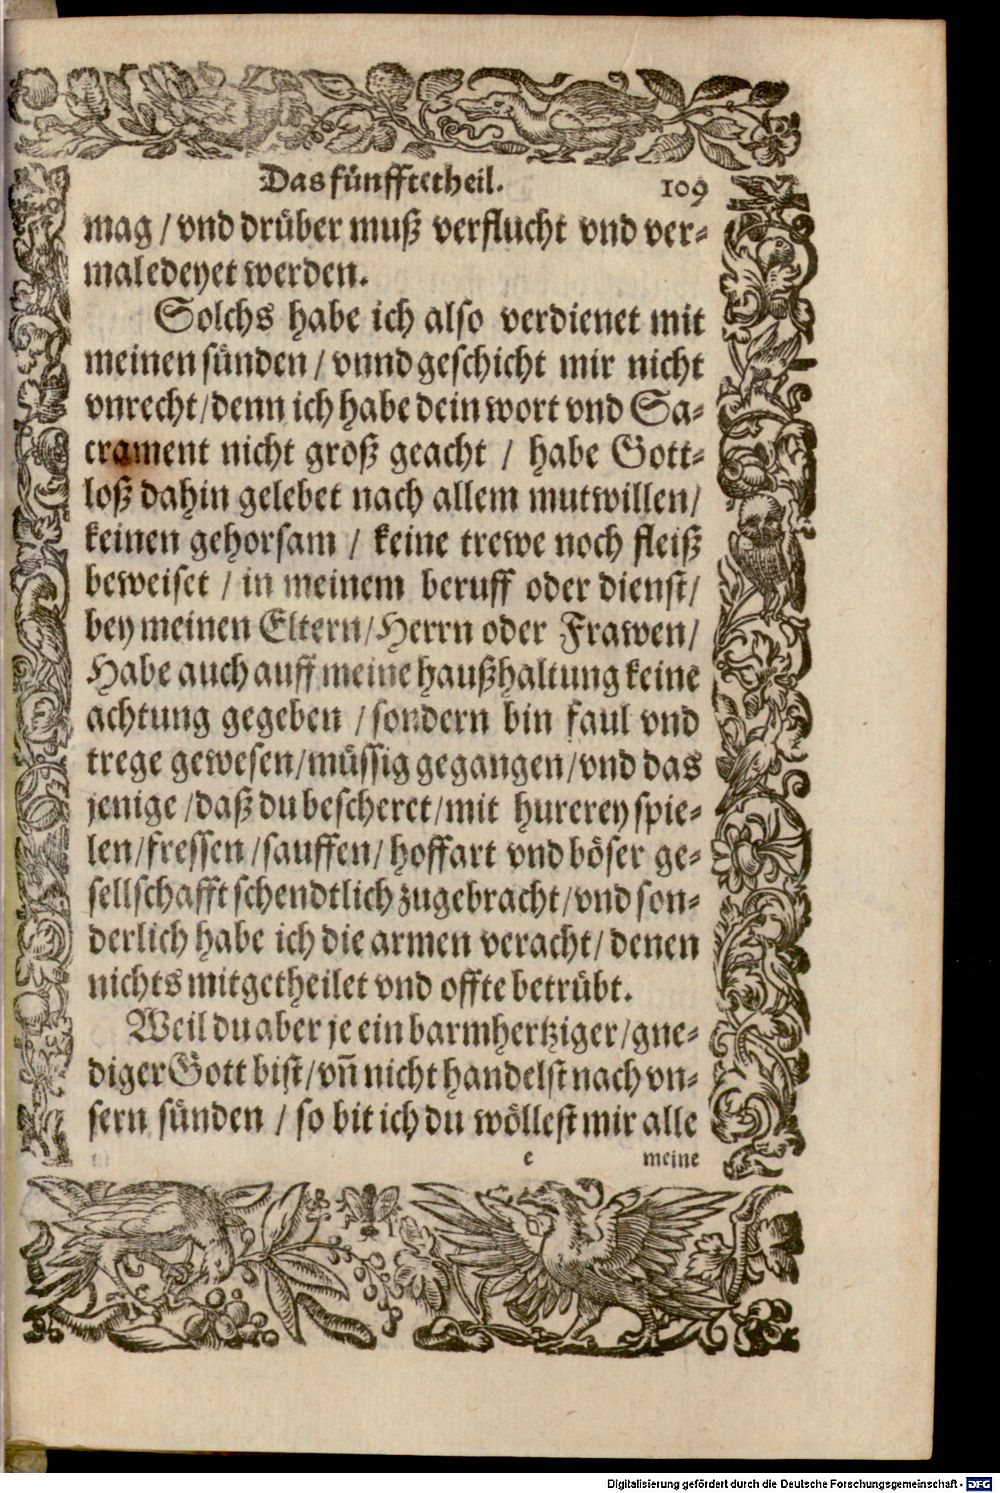 Das fünfftetheil. 109
mag / vnd drüber muß verflucht vnd ver-
maledeyet werden.
Solchs habe ich also verdienet mit
meinen sünden / vnnd geschicht mir nicht
vnrecht / denn ich habe dein wort vnd Sa-
crament nicht groß geacht / habe Gott-
loß dahin gelebet nach allem mutwillen /
keinen gehorsam / keine trewe noch fleiß
beweiset / in meinem beruff oder dienst /
bey meinen Eltern / Herrn oder Frawen /
Habe auch auff meine haußhaltung keine
achtung gegeben / sondern bin faul vnd
trege gewesen / müssig gegangen / vnd das
jenige / daß du bescheret / mit hurerey spie-
len / fressen / sauffen / hoffart vnd böser ge-
sellschafft schendtlich zugebracht / vnd son-
derlich habe ich die armen veracht / denen
nichts mitgetheilet vnd offte betrübt.
Weil du aber je ein barmhertziger / gne-
diger Gott bist / vn̄ nicht handelst nach vn-
sern sünden / so bit ich du wöllest mir alle
e meine
Digitalisierung gefördert durch die Deutsche Forschungsgemeinschaft - DFG